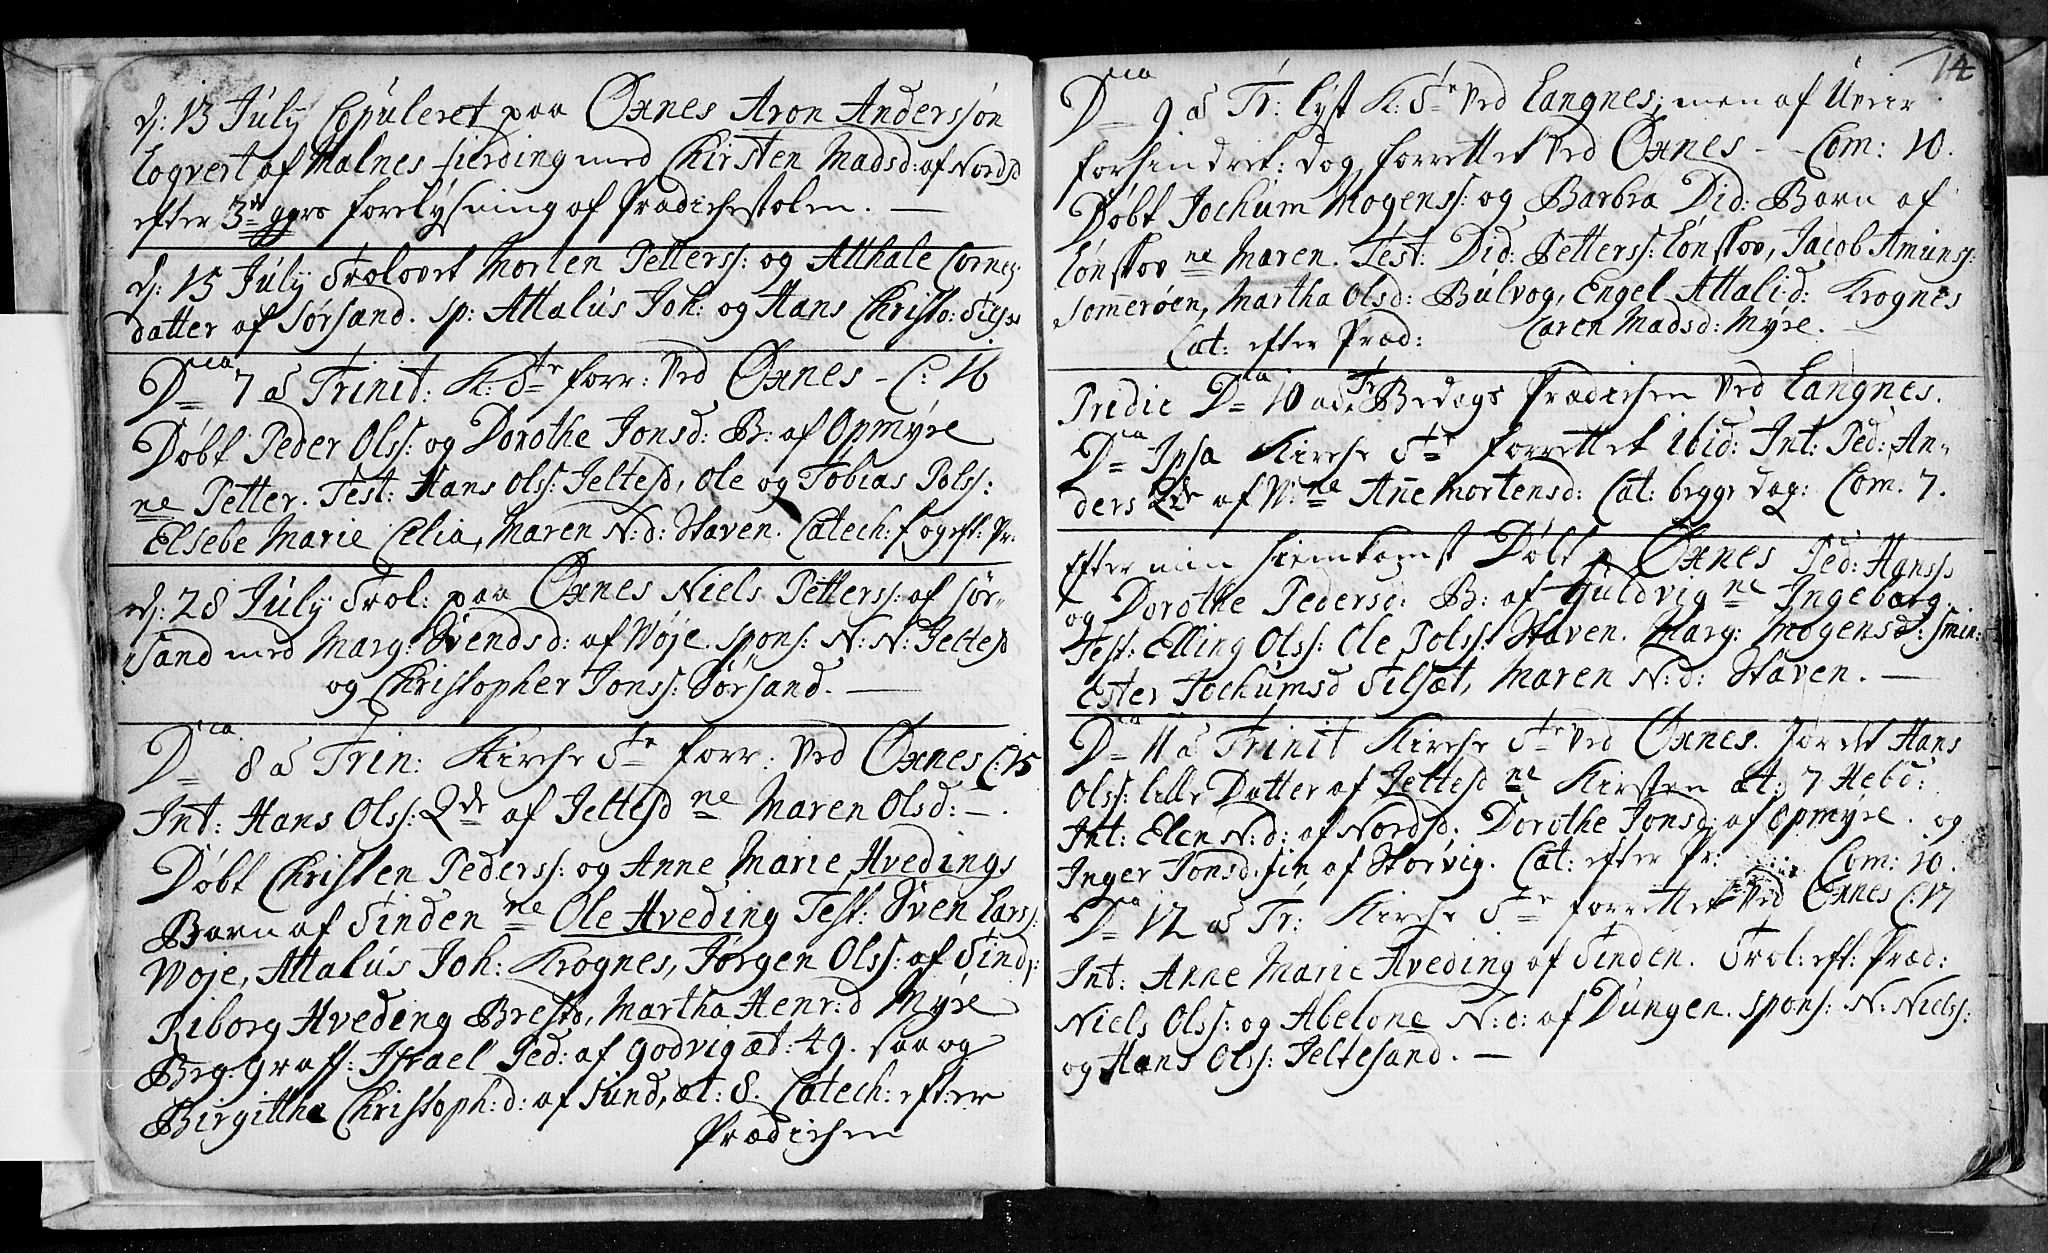 d: 13 July Copuleret paa Öxnes Aron Anderssøn
Logvert af Malnes fierding med Chirsten Madsd: af Nordsd
efter 3de ggrs forelysning af Prædichestolen. —
d: 15 July Trolovet Morten Petterss: og Atthale Cornel:
datter af Sørsand. sp: Attalus Joh: og Hans Christo:
Dnca 7 a Trinit: K: Ste forr: Ved Öxnes - C: 16
Døbt Peder Olss: og Dorothe Jonsd: B: af Opmyre
ne Petter. Test: Hans Olss: Jeltesd, Ole og Tobias Polss:
Elsebe Marie Celia, Maren N:d: Staven. Catech: f. og eft: Pr:
d: 28 July Trol: paa Öxnes Niels Petterss: af Sør-
sand med Marg: Svendsd: af Woje. spons: N: N: Jeltesd
og Christopher Jonss: Sørsand. —
Dnca 8 a Trin: Kirche Ste forr: Ved Öxnes C: 15
Int: Hans Olss: Qde af Jeltesd ne Maren Olsd: —.
Døbt Christen Pederss: og Anne Marie Hvedings
Barn af Tinden ne Ole Hveding Test: Sven Larss:
Woje, Attalus Joh: Krognes, Jørgen Olss: af Tind:
Riborg Hveding Brestd, Martha Henr:d Myre
Beg: graff: Israel Ped: af Godvig æt: 49. saa og
Birgitthe Christoph:d: af Sund, æt: 8. Catech: efter
Prædichen
14
Dnca 9 a Tr: lyst K: Ste Ved Langnes, men af Uveir
forhindret: dog forrettet Ved Öxnes - - Com: 10.
Døbt Jochum Mogenss: og Barbra Did: Barn af
Lonskov ne Maren. Test: Did: Petterss: Lonskov, Jacob Amunss:
Somerøen, Martha Olsd: Bulvog, Engel Attali:d: Krognes
Cat: efter Præd: Caren Madsd: Myre.
Pridie Dnca 10 a Tr Bedags Prædichen Ved Langnes.
Dnca Ipsa Kirche Ste forrettet ibid: Int: Ped: An-
ders Qde af N: ne Anne Mortensd: Cat: begge dag: Com. 7.
Efter min hiemkomst Døbt p Öxnes Ped: Hanss
og Dorothe Pedersd: B: af Guldvig ne Ingeborg
Test: Elling Olss: Ole Polss: Staven. Marg: Mogensd: Smin:
Ester Jochumsd Tilsæt, Maren N:d: Staven. —
Dnca 11 a Trinit Kirche Ste Ved Öxnes. Jordet Hans
Olss: lille Datter af Jeltesd ne Kirsten æt: 7 Hebd:
Int: Elen N:d: af Nordsd. Dorothe Jonsd: af Opmyre. og
Inger Jonsd: fin af Storvig. Cat: efter Pr: Com: 10.
Dnca 12 a Tr: Kirche Ste forrettet Ved Öxnes C: 17
Int: Anne Marie Hveding af Tinden. Trol: eft: Præd:
Niels Olss: og Abelone N:d: af Dungen. spons: N: Nielss:
og Hans Olss: Jeltesand. —